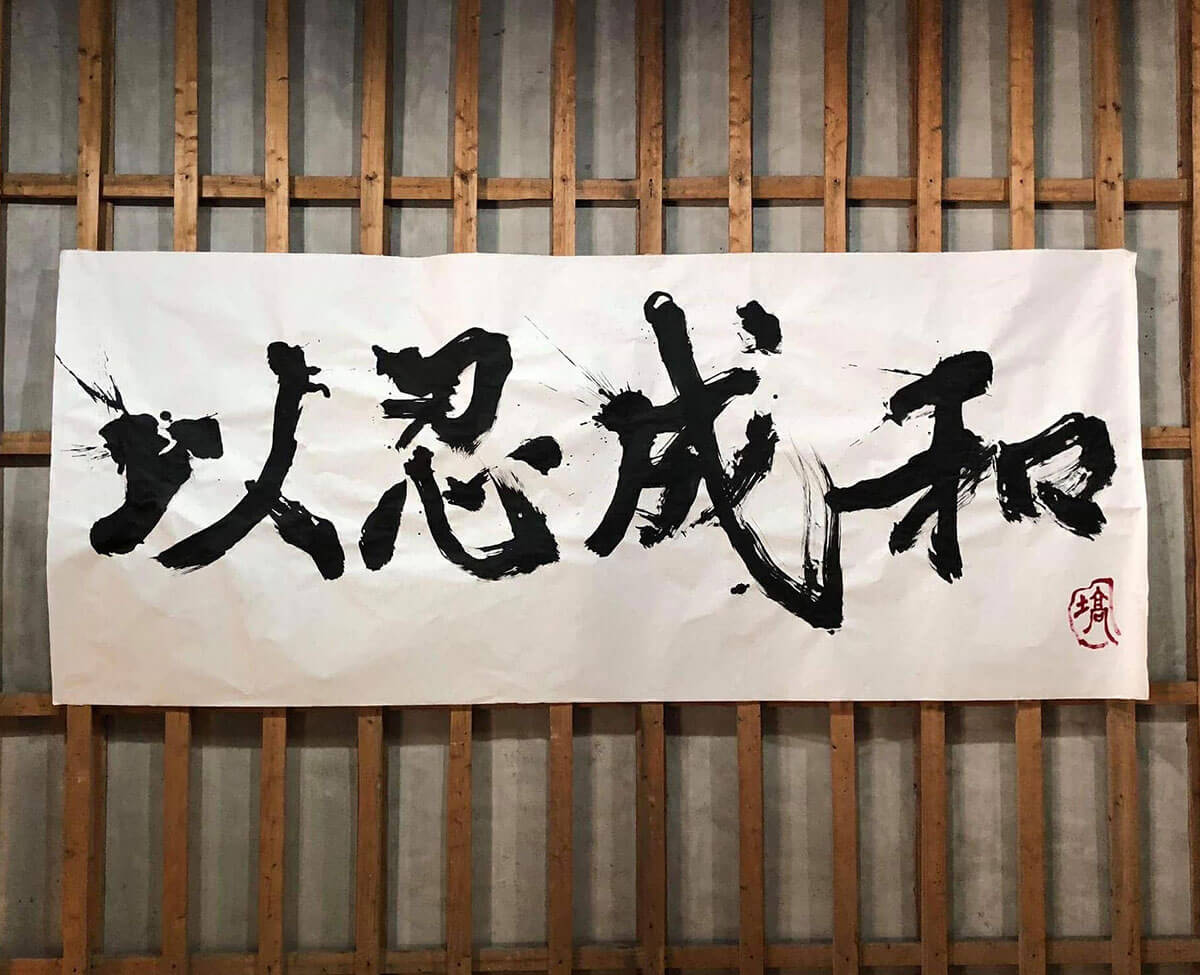 以忍成和
塙